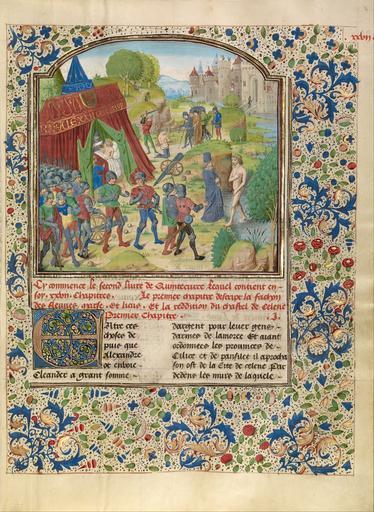 xxvij
Cy commence le second livre de Quintecurce lequel contient en
soy xxvij. Chapitres. Le premier chapitre descripe la fachon
des fleuves, Et la reddition du chastel de Celene
Premier Chapitre .j.
Altre ces
choses de
puis que
Alexandre
ot envoie
Cleander a grant somme
dargent pour lever gens
darmes de lamoree Et aiant
ordonnees les provinces de
Cilice et de panfilie il aprocha
son ost de la Cite de celene Par
dedens les murs de laquele